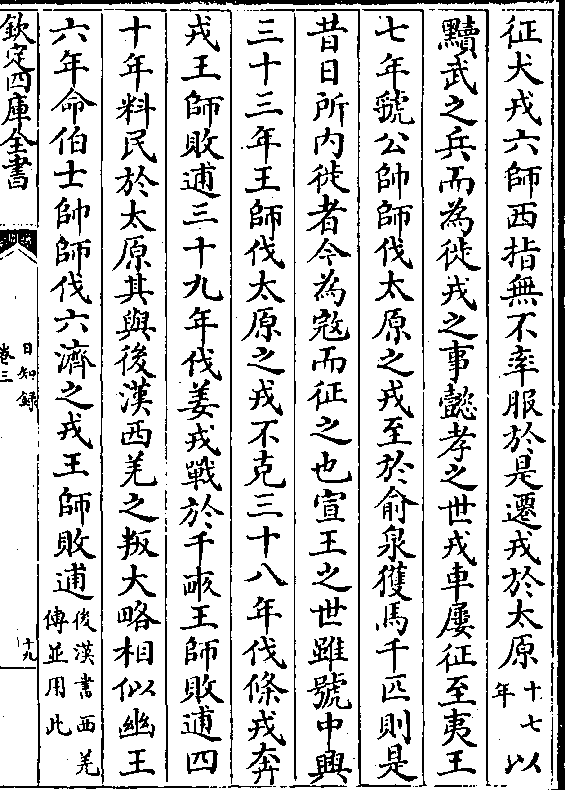 征犬戎六師西指無不率服於是遷戎於太原十七年以
黷武之兵而為徙戎之事懿孝之世戎車屢征至夷王
七年虢公帥師伐太原之戎至於俞泉獲馬千匹則是
昔日所內徙者今為寇而征之也宣王之世雖號中興
三十三年王師伐太原之戎不克三十八年伐條戎奔
戎王師敗逋三十九年伐姜戎戰於千畝王師敗逋四
十年料民於太原其與後漢西羌之叛大略相似幽王
六年命伯士帥師伐六濟之戎王師敗逋後漢書西羌傳並用此
欽定四庫全書
日知錄
卷三
十九